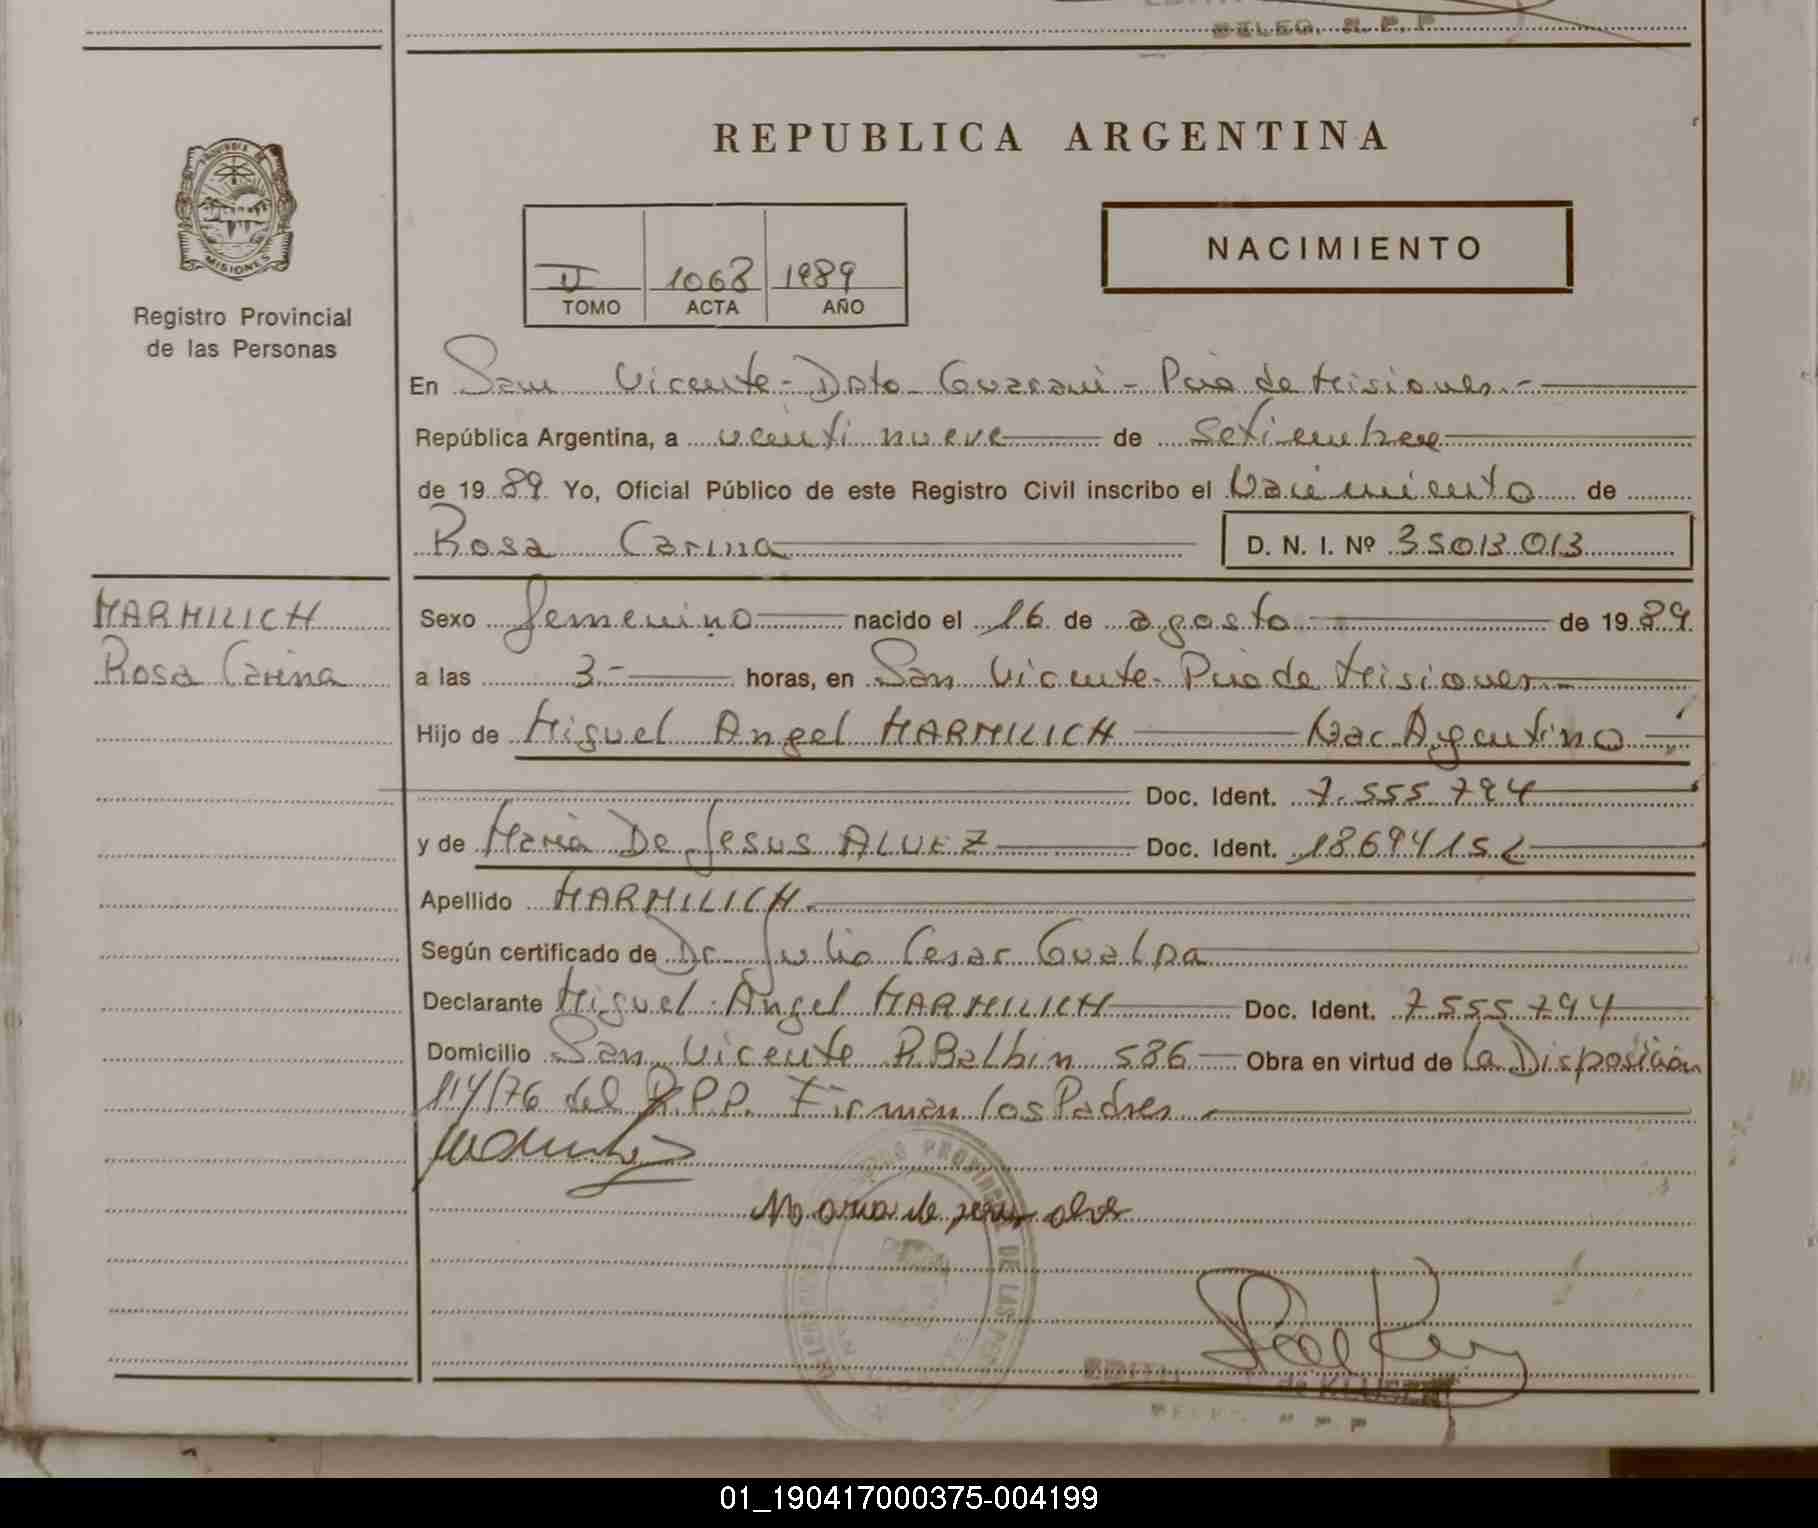 DELEG. R. P. P.
REPUBLICA ARGENTINA
PROVINCIA DE
MISIONES
Registro Provincial
de las Personas
II 1068 1989
TOMO ACTA AÑO
NACIMIENTO
En San Vicente - Dpto Guarani - Pcia de Misiones.-
República Argentina, a veinti nueve de Setiembre
de 1989 Yo, Oficial Público de este Registro Civil inscribo el Nacimiento de
Rosa Carina D. N. I. Nº 35013013
MARMILICH
Rosa Carina
Sexo femenino nacido el 16 de agosto de 1989
a las 3.- horas, en San Vicente - Pcia de Misiones.-
Hijo de Miguel Angel MARMILICH Nac Argentino
Doc. Ident. 7.555.794
y de Maria De Jesus ALVEZ Doc. Ident. 18694152
Apellido MARMILICH.
Según certificado de Dr. Julio Cesar Gualpa
Declarante Miguel Angel MARMILICH Doc. Ident. 7555794
Domicilio San Vicente R. Balbin 586 Obra en virtud de la Disposición
114/76 del R.P.P. Firman los Padres
Maria de jesus alves
PROVINCIAL DE LAS
EDITH de KLUSEN
01_190417000375-004199